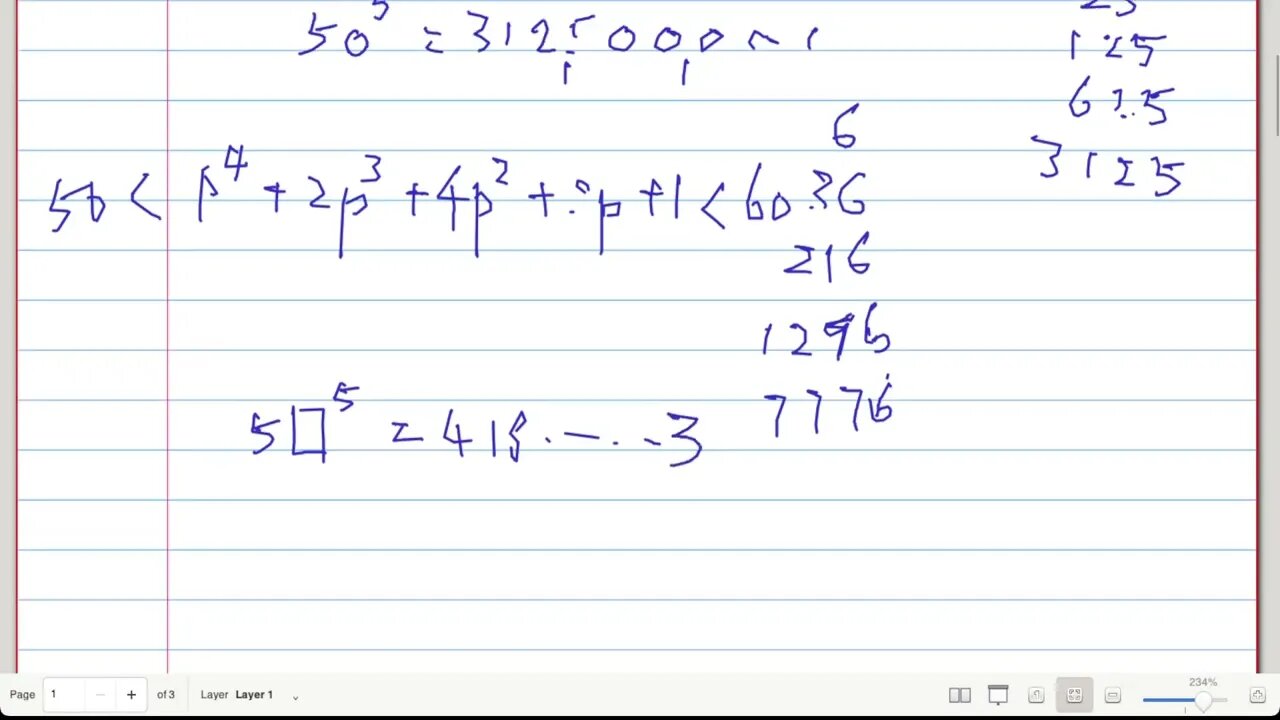 50^5 = 312500000
25
125
625
3125
50 < p^4 + 2p^3 + 4p^2 + 3p + 1 < 60
6
36
216
1296
7776
5□^5 = 418.-..3
Page 1 - + of 3 Layer Layer 1
234%